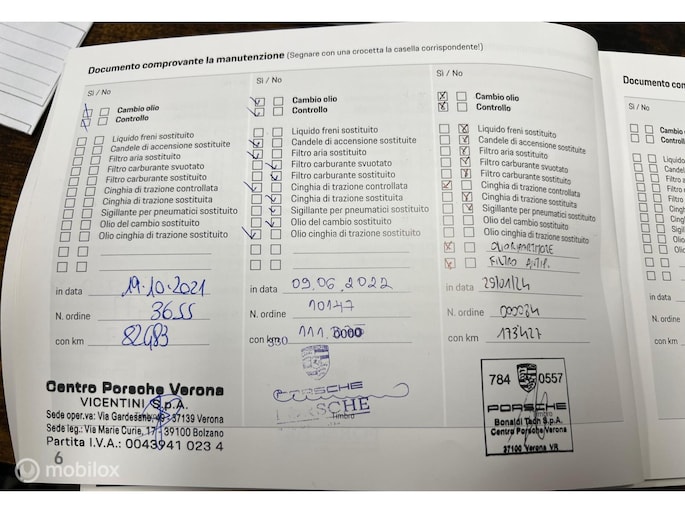 Documento comprovante la manutenzione (Segnare con una crocetta la casella corrispondente!)
Sì / No
Cambio olio
Controllo
Liquido freni sostituito
Candele di accensione sostituite
Filtro aria sostituito
Filtro carburante svuotato
Filtro carburante sostituito
Cinghia di trazione controllata
Cinghia di trazione sostituita
Sigillante per pneumatici sostituito
Olio del cambio sostituito
Olio cinghia di trazione sostituito
in data 19.10.2021
N. ordine 3655
con km 82483
Centro Porsche Verona
VICENTINI S.p.A.
Sede oper.va: Via Gardesane, 49 - 37139 Verona
Sede leg.: Via Marie Curie, 17 - 39100 Bolzano
Partita I.V.A.: 0043941 023 4
6
Sì / No
Cambio olio
Controllo
Liquido freni sostituito
Candele di accensione sostituite
Filtro aria sostituito
Filtro carburante svuotato
Filtro carburante sostituito
Cinghia di trazione controllata
Cinghia di trazione sostituita
Sigillante per pneumatici sostituito
Olio del cambio sostituito
Olio cinghia di trazione sostituito
in data 09.06.2022
N. ordine 10147
con km
PORSCHE
Timbro
PORSCHE
Sì / No
Cambio olio
Controllo
Liquido freni sostituito
Candele di accensione sostituite
Filtro aria sostituito
Filtro carburante svuotato
Filtro carburante sostituito
Cinghia di trazione controllata
Cinghia di trazione sostituita
Sigillante per pneumatici sostituito
Olio del cambio sostituito
Olio cinghia di trazione sostituito
FILTRO
in data 29/01/24
N. ordine
con km 173427
784 0557
PORSCHE
Timbro
Bonaldi Tech S.p.A.
Centro Porsche Verona
37100 Verona VR
Documento com
Sì / No
Cambio
Controll
mobilox